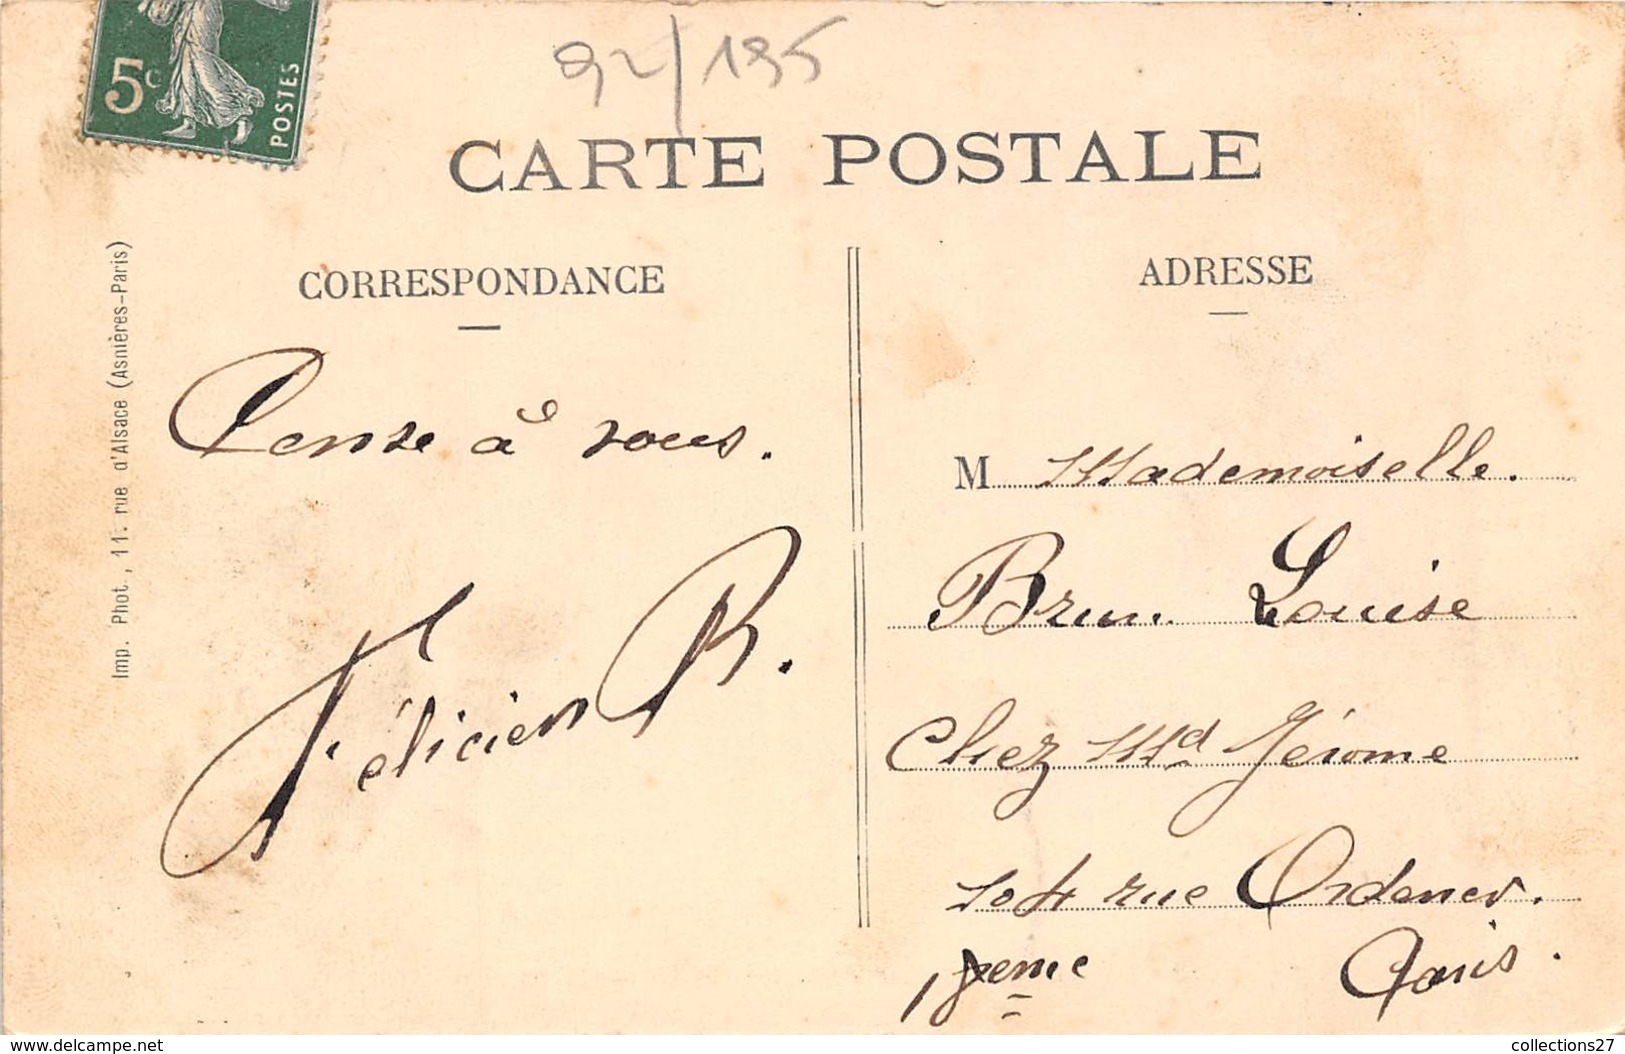 5c
POSTES
92/195
CARTE POSTALE
Imp. Phot., 11, rue d'Alsace (Asnières-Paris)
CORRESPONDANCE
Pense à vous.
Félicien R.
ADRESSE
M Mademoiselle.
Brun Louise
Chez Md Jérome
104 rue Ordener.
18eme Paris.
delcampe.net
collections27